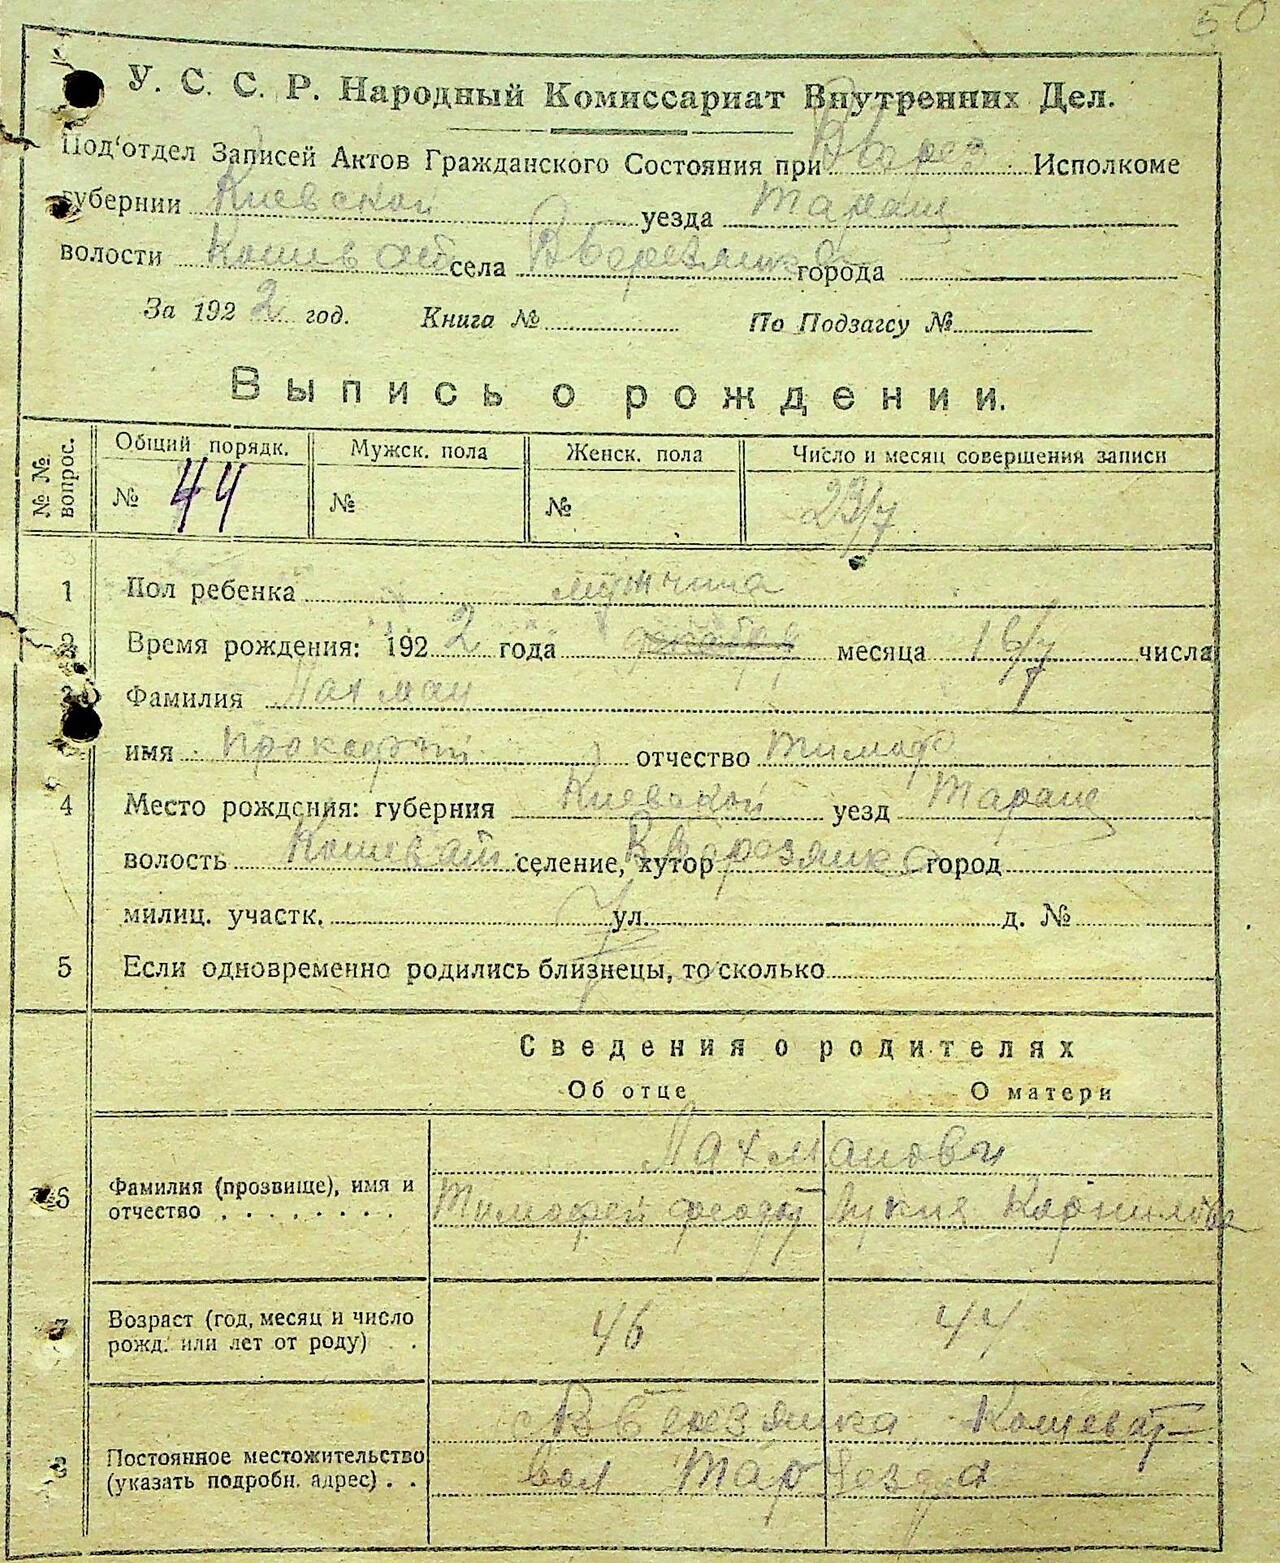 50
У. С. С. Р. Народный Комиссариат Внутренних Дел.
Под‘отдел Записей Актов Гражданского Состояния при В Берез Исполкоме
губернии Киевской уезда Таращ
волости Кошеват села В Березянка города
За 1922 год. Книга № По Подзагсу №
Выпись о рождении.
№ № вопрос. Общий порядк. Мужск. пола Женск. пола Число и месяц совершения записи
№ 44 № № 23/7
1 Пол ребенка мужчина
2 Время рождения: 1922 года декабря месяца 16/7 числа
3 Фамилия Лахман
имя Прокофий отчество Тимоф
4 Место рождения: губерния Киевской уезд Таращ
волость Кошеват селение, хутор В Березянка город
милиц. участк. ул. д. №
5 Если одновременно родились близнецы, то сколько
Сведения о родителях
Об отце О матери
Лахмановы
6 Фамилия (прозвище), имя и отчество Тимофей Феодот Лукия Корнилова
7 Возраст (год, месяц и число рожд. или лет от роду) 46 44
8 Постоянное местожительство (указать подробн. адрес) В Березянка Кошеват
вол Тар уезда